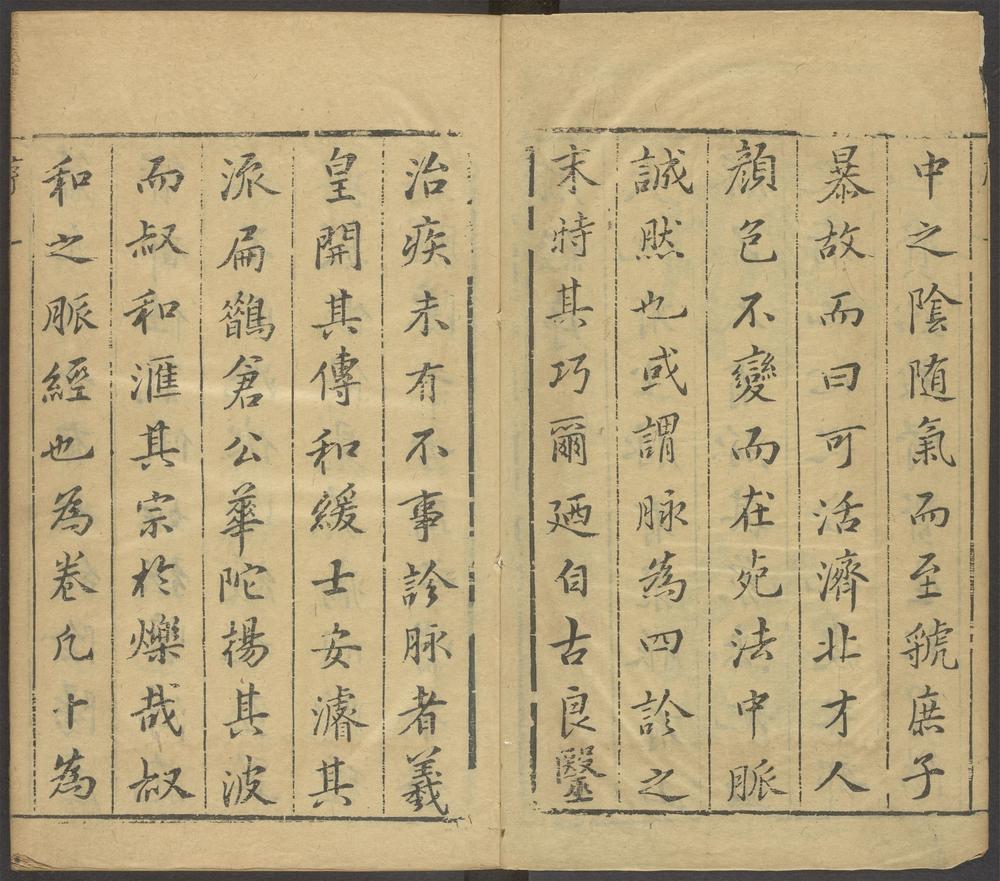 中之陰隨氣而至虢庶子
暴故而曰可活濟北才人
顔色不變而在死法中脈
誠然也或謂脉為四診之
末特其巧爾廼自古良毉
治疾未有不事診脉者羲
皇開其傳和緩士安濬其
派扁鵲倉公華陀揚其波
而叔和滙其宗於爍哉叔
和之脈經也為卷凡十為
序
一